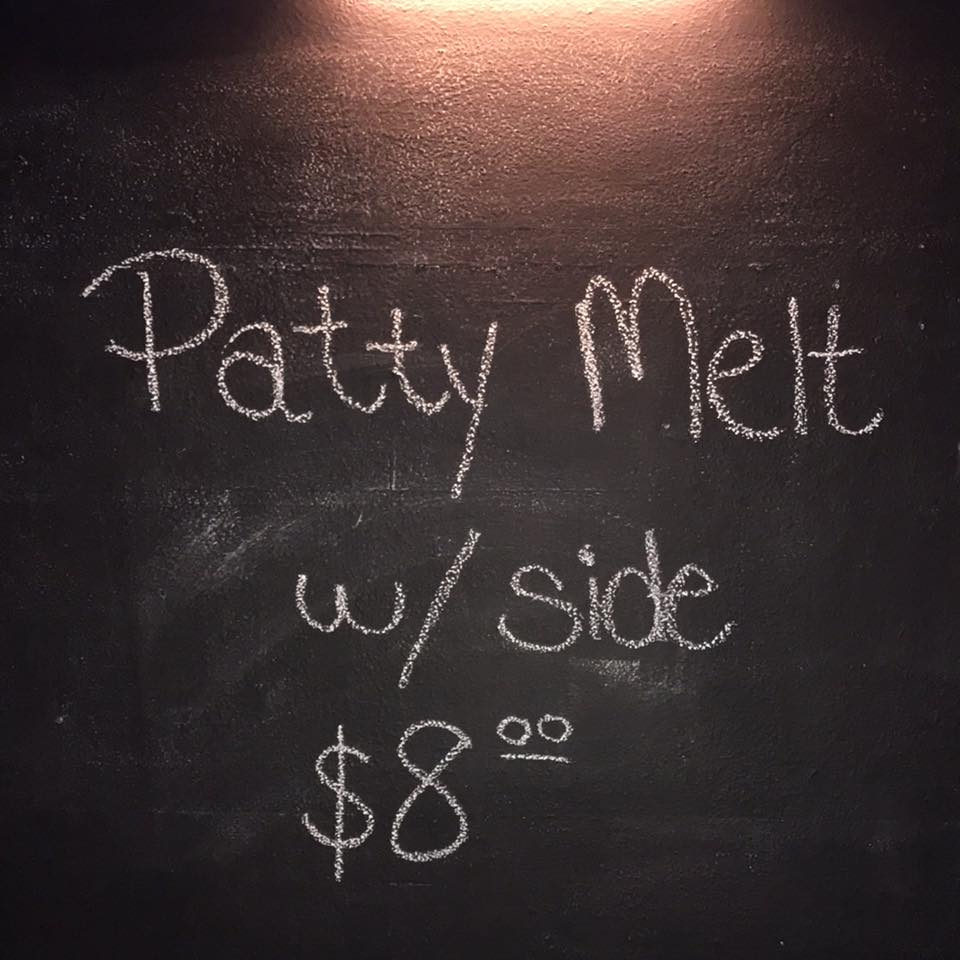 Patty Melt
w/ side
$8.00